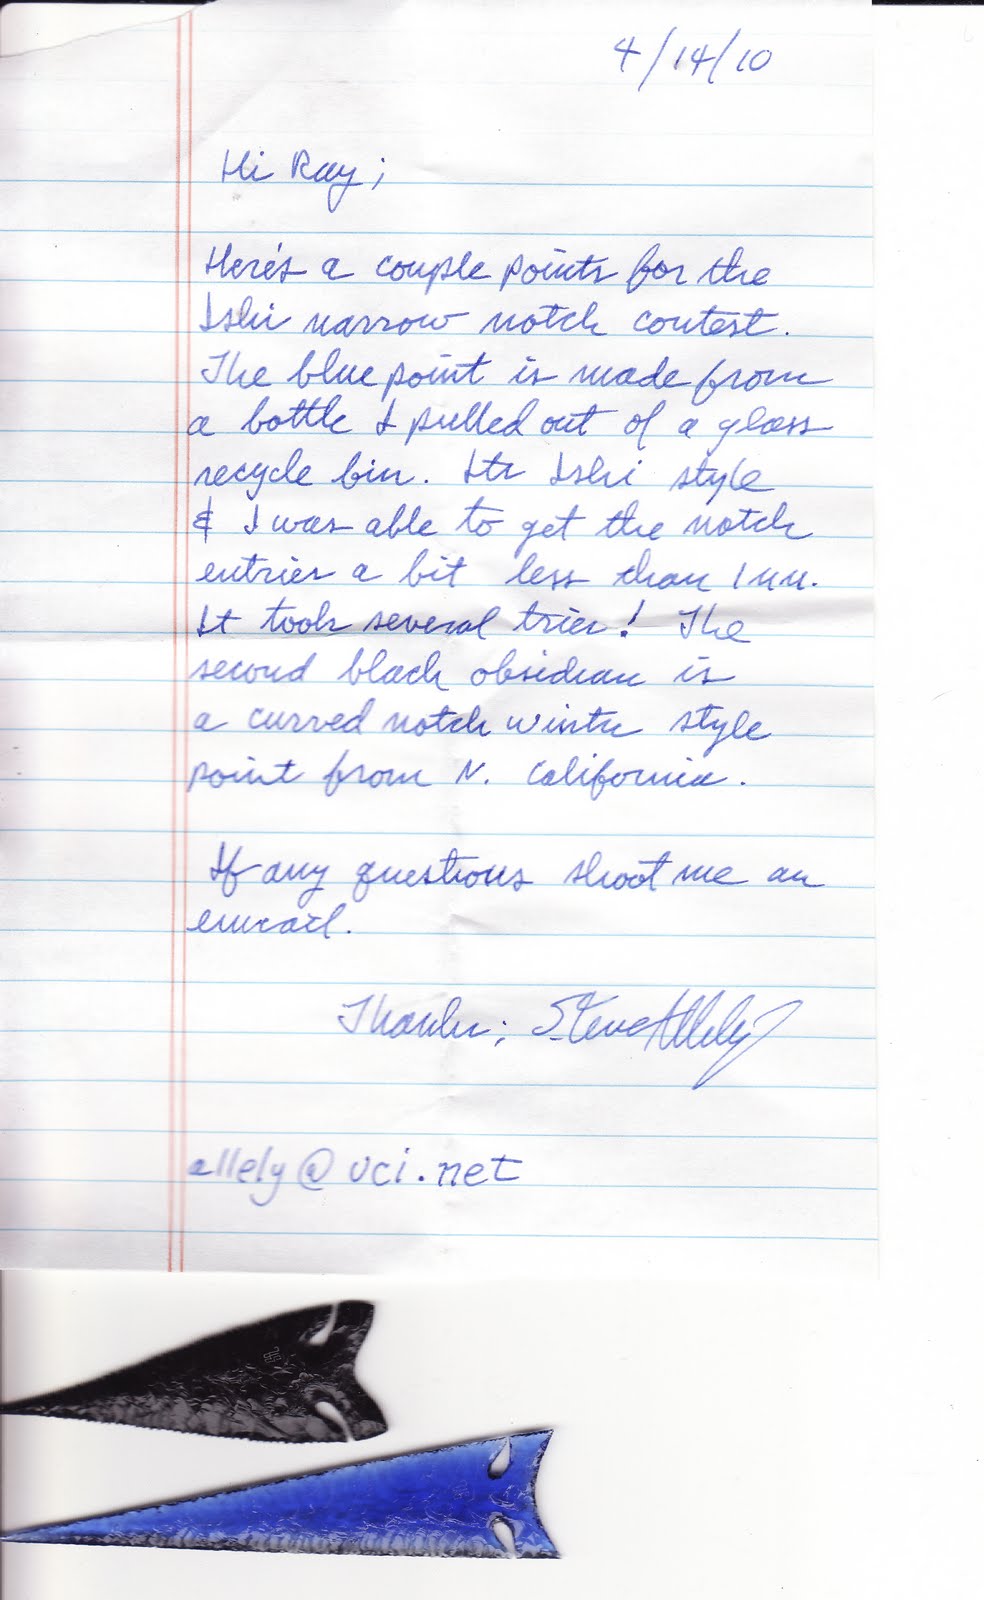 4/14/10
Hi Ray;
Here's a couple points for the
Ishi narrow notch contest.
The blue point is made from
a bottle I pulled out of a glass
recycle bin. Its Ishi style
& I was able to get the notch
entries a bit less than 1 mm.
It took several tries! The
second black obsidian is
a curved notch wintu style
point from N. California.
If any questions shoot me an
email.
Thanks; Steve Allely
allely@uci.net